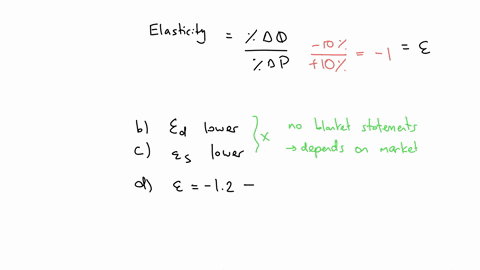 Elasticity = %ΔQ / %ΔP -10% / +10% = -1 = ε
b) εd lower
c) εs lower
x no blanket statements
→ depends on market
d) ε = -1.2 –